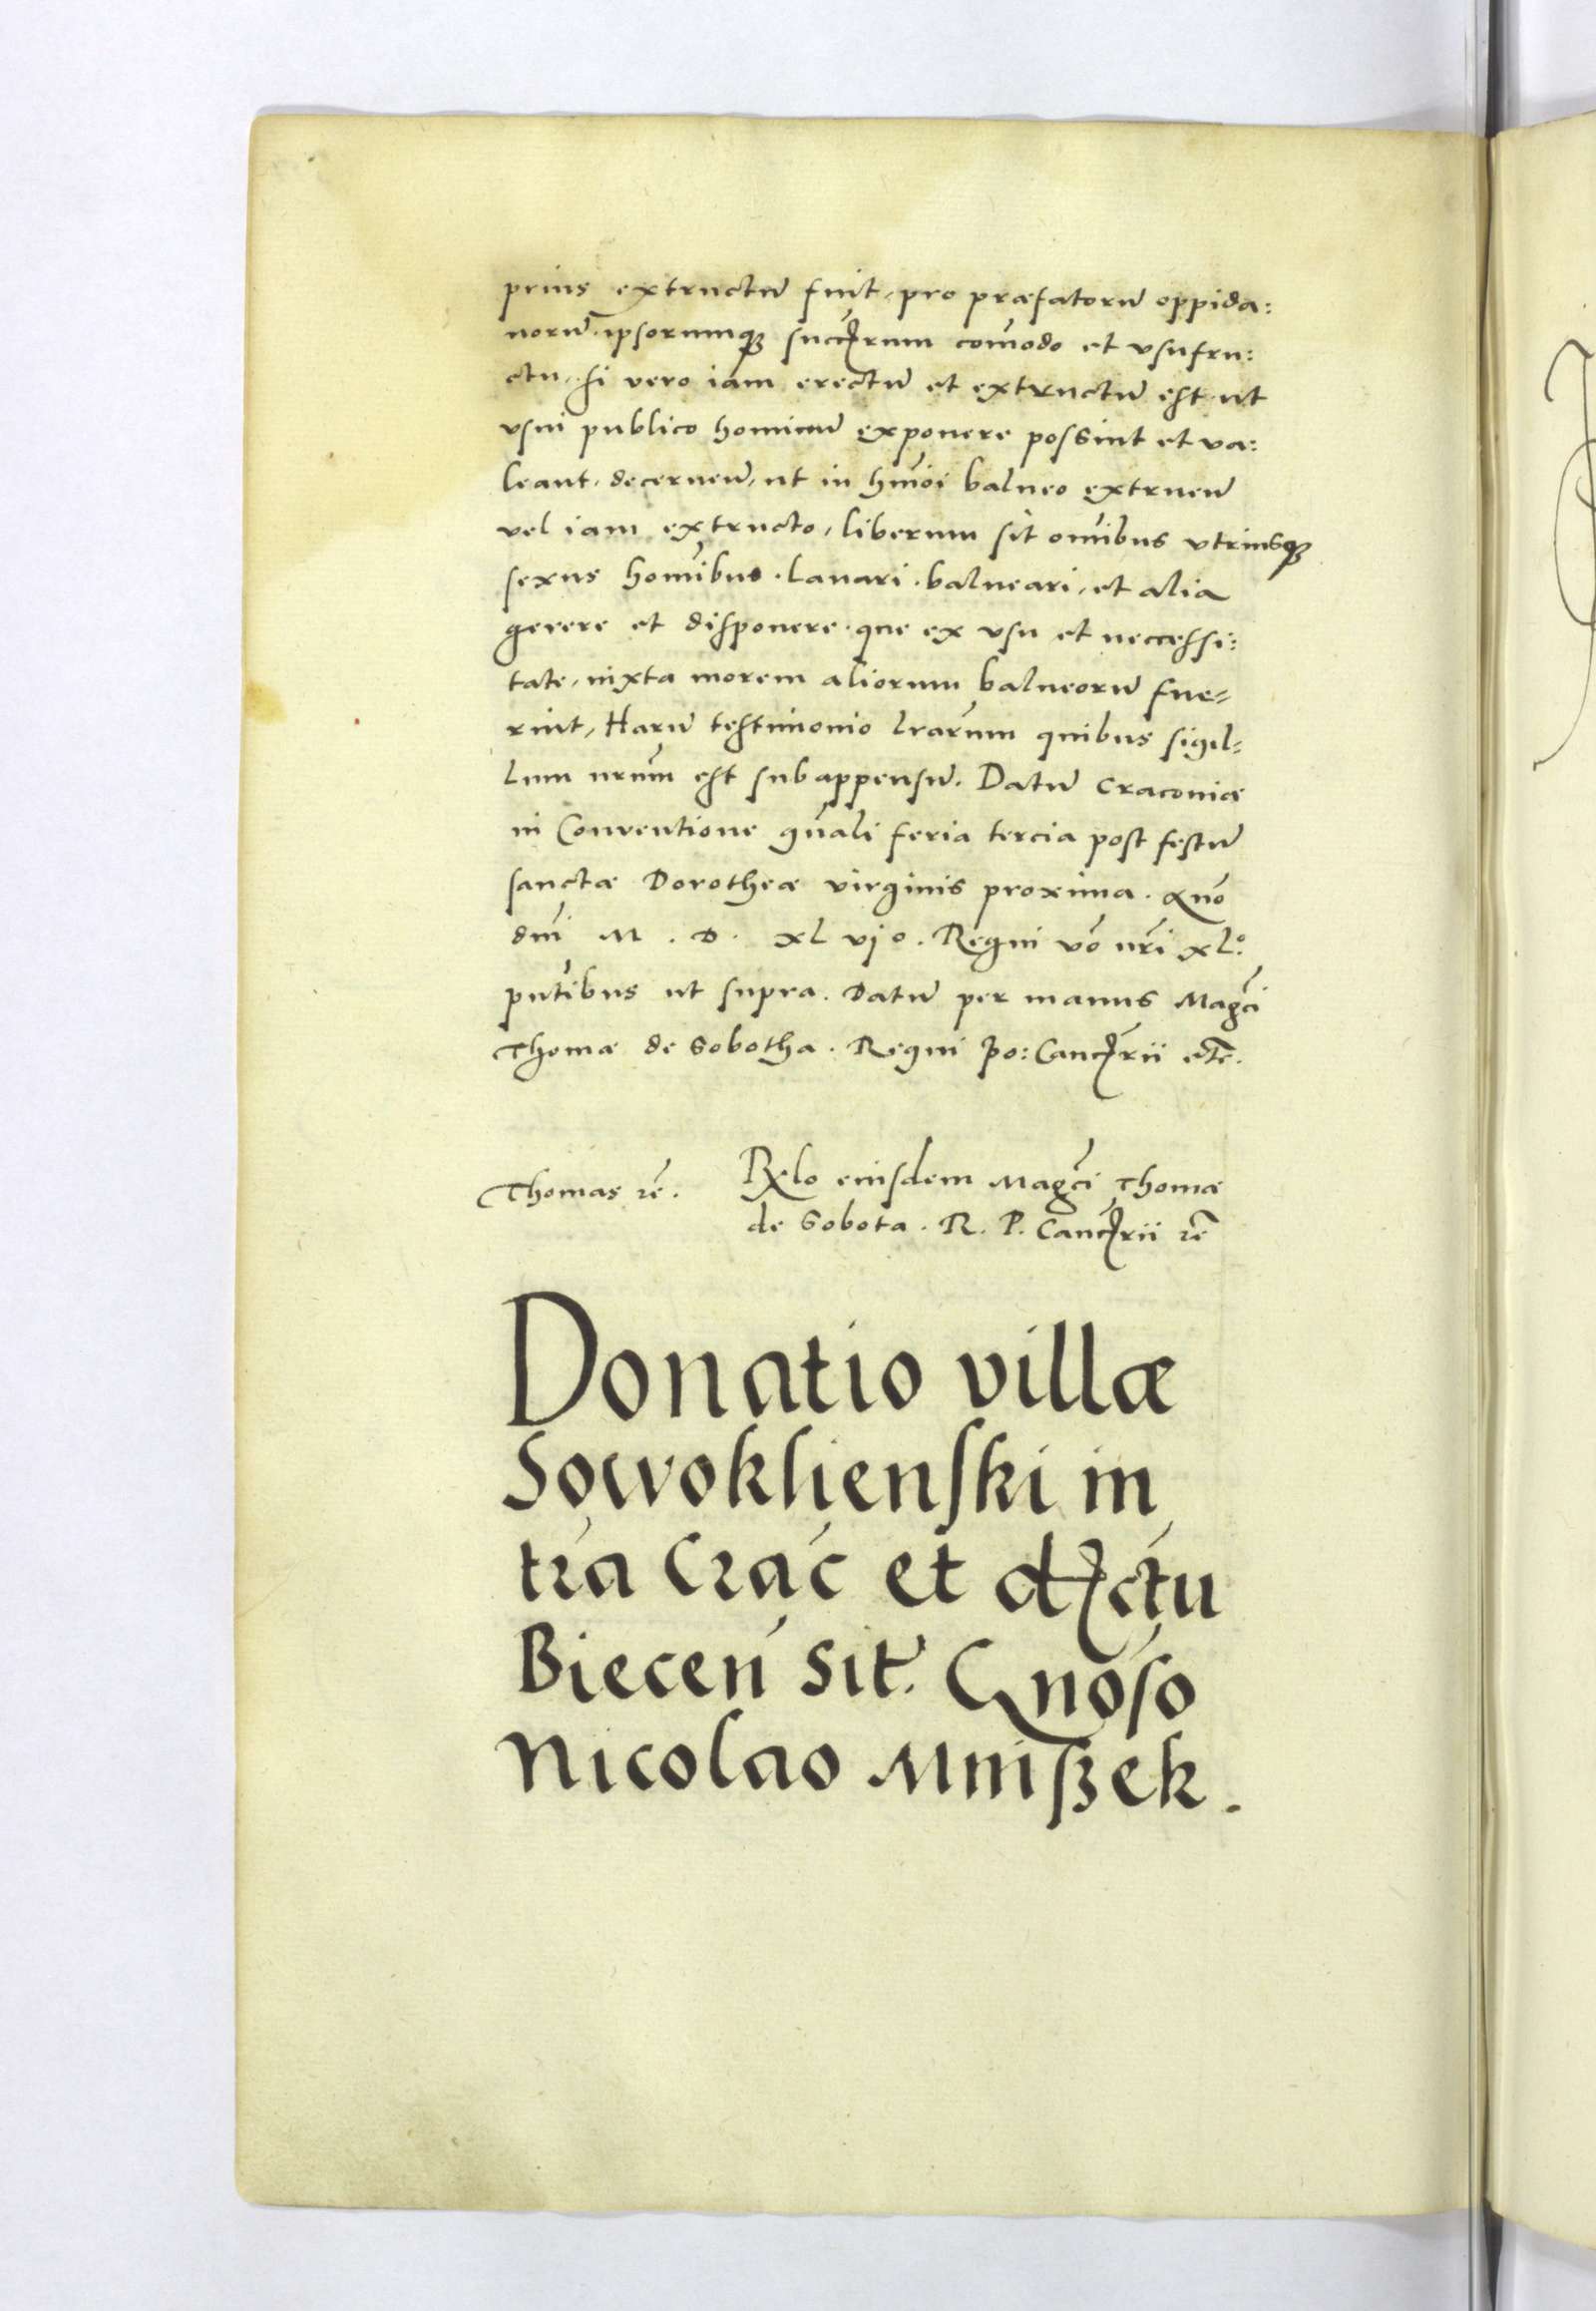 prius extructũ fuit, pro præfatorũ oppida:
norũ. ipsorumq; succẽrum com̃odo et vsufru:
ctu, si vero iam erectũ et extructũ est. ut
vsui publico hominũ exponere possint et va:
leant. decerneñ, ut in hm̃oi balneo extrueñ
vel iam extructo, liberum sit om̃ibus vtriusq;
sexus hom̃ibus. lavari. balneari, et alia
gerere et disponere. que ex vsu et neccessi:
tate, iuxta morem aliorum balneorũ fue=
rint, Harũ testimonio lrarum quibus sigil=
lum nrum est subappensũ. Datũ Cracoviæ
in Conventione gñali feria tercia post festũ
sanctæ Dorotheæ virginis proxima. Año
dñi M. D. XL vjo. Regni vo nri xlo.
pñtibus ut supra. Datũ per manus Magci
Thomæ de Sobotha. Regni Po: Cancrii etc.
Thomas rẽ. Relo eiusdem Magci Thomæ
de Sobota. R. P. Cancrii rẽ
Donatio villæ
Sowoklienski in
tra Crac et districtu
Biecen̄ Sit. Gnoso
Nicolao Mniszek.